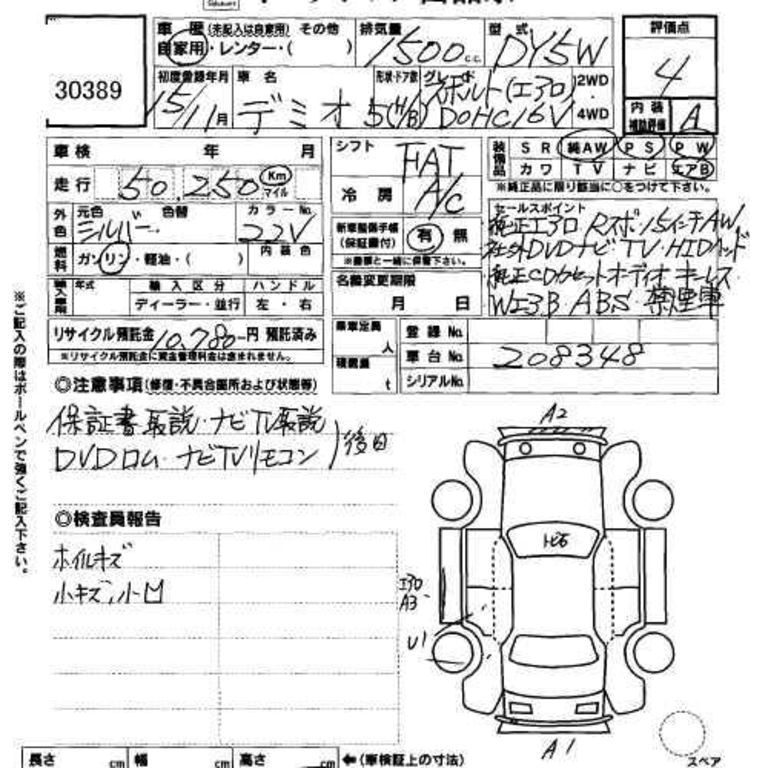 車歴 (未記入は自家用) その他
自家用・レンター・( )
排気量 1500 c.c.
型式 DY5W
評価点 4
30389
初度登録年月 15/11月
車名 デミオ
形状・ドア数 5(H/B)
グレード スポルト(エアロ) DOHC16V
2WD
4WD
内装補助評価 A
車検 年 月
走行 50,250 Km マイル
シフト FAT
冷房 A/C
装備品 SR 純AW PS PW
カワ TV ナビ エアB
※純正品に限り該当に○をつけて下さい。
外色 元色 シルバー 色替
カラーNo. 22V
燃料 ガソリン・軽油・( )
内装色
新車整備手帳(保証書付) 有 無
※書類と一緒に保管下さい。
セールスポイント
純正エアロ Rスポ・15インチAW
社外DVDナビTV・HIDヘッド
純正CDカセットオーディオ キーレス・
WエアB・ABS・禁煙車
輸入車用 年式 輸入区分 ハンドル
ディーラー・並行 左・右
名義変更期限
月 日
リサイクル預託金 10,780-円 預託済み
※リサイクル預託金に資金管理料金は含まれません。
乗車定員 人
積載量 t
登録No.
車台No. 208348
シリアルNo.
◎注意事項(修復・不具合箇所および状態等)
保証書 取説・ナビTV取説
DVDロム・ナビTVリモコン)後日
◎検査員報告
ホイルキズ
小キズ,小凹
※ご記入の際はボールペンで強くご記入下さい。
A2
トビ石
エアロ
A3
U1
A1
スペア
長さ cm 幅 cm 高さ cm ←(車検証上の寸法)